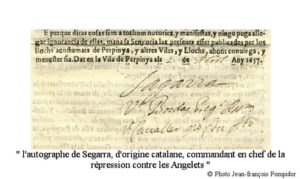 E perque ditas cosas sien a tothom notorics, y manifestas, y ningu puga allegar
ignorancia de ellas, mana sa Senyoria las presents esser publicades per los
llochs acostumats de Perpinya, y altres Viles, y Llochs, ahont convinga, y
menester sia. Dat en la Vila de Perpinya als 2 de Any 1657.
Segarra
" l'autographe de Segarra, d'origine catalane, commandant en chef de la
répression contre les Angelets "
© Photo Jean-françois Pompidor